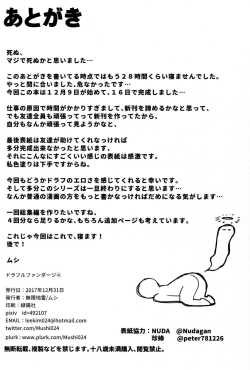 あとがき
死ぬ、
マジで死ぬかと思いました…
このあとがきを書いてる時点ではもう２８時間くらい寝ませんでした。
やっと間に合いました、危なかったです…
今回この本は１２月９日が始めて、１６日で完成しました…
仕事の原因で時間がかかりすぎまして、新刊を諦めるかなと思って、
でも友達全員も頑張ってって新刊を作ってたから、
自分もなんか頑張って見ようかなと、
最後表紙は友達が助けてくれなっければ
多分完成出来なかったと思います、
それにこんなにすごくいい感じの表紙が最高です。
私色塗りは下手ですからね。
今回もどうかドラフのエロさを感じてくれると幸いです。
そして多分このシリーズは一旦終わりにすると思います、
なんか普通の漫画の方をもっと書かなければだめになる気がします…
一回総集編を作りたいですね、
４回分なら足りるかな、もちろん追加ページも考えています。
これじゃ今回はこれで、寝ます！
後で！
ムシ
ドラフルファンダージ④
発行日：2017年12月31日
発行者：無限地雷/ムシ
印刷：緑陽社
pixiv　id=492107
EMAIL：leekim024@hotmail.com
twitter.com/Mushi024
plurk：www.plurk.com/Mushi024
表紙協力：NUDA　@Nudagan
珍蜂　@peter781226
無断転載、複製などを禁じます。十八歳未満購入、閲覧禁止。